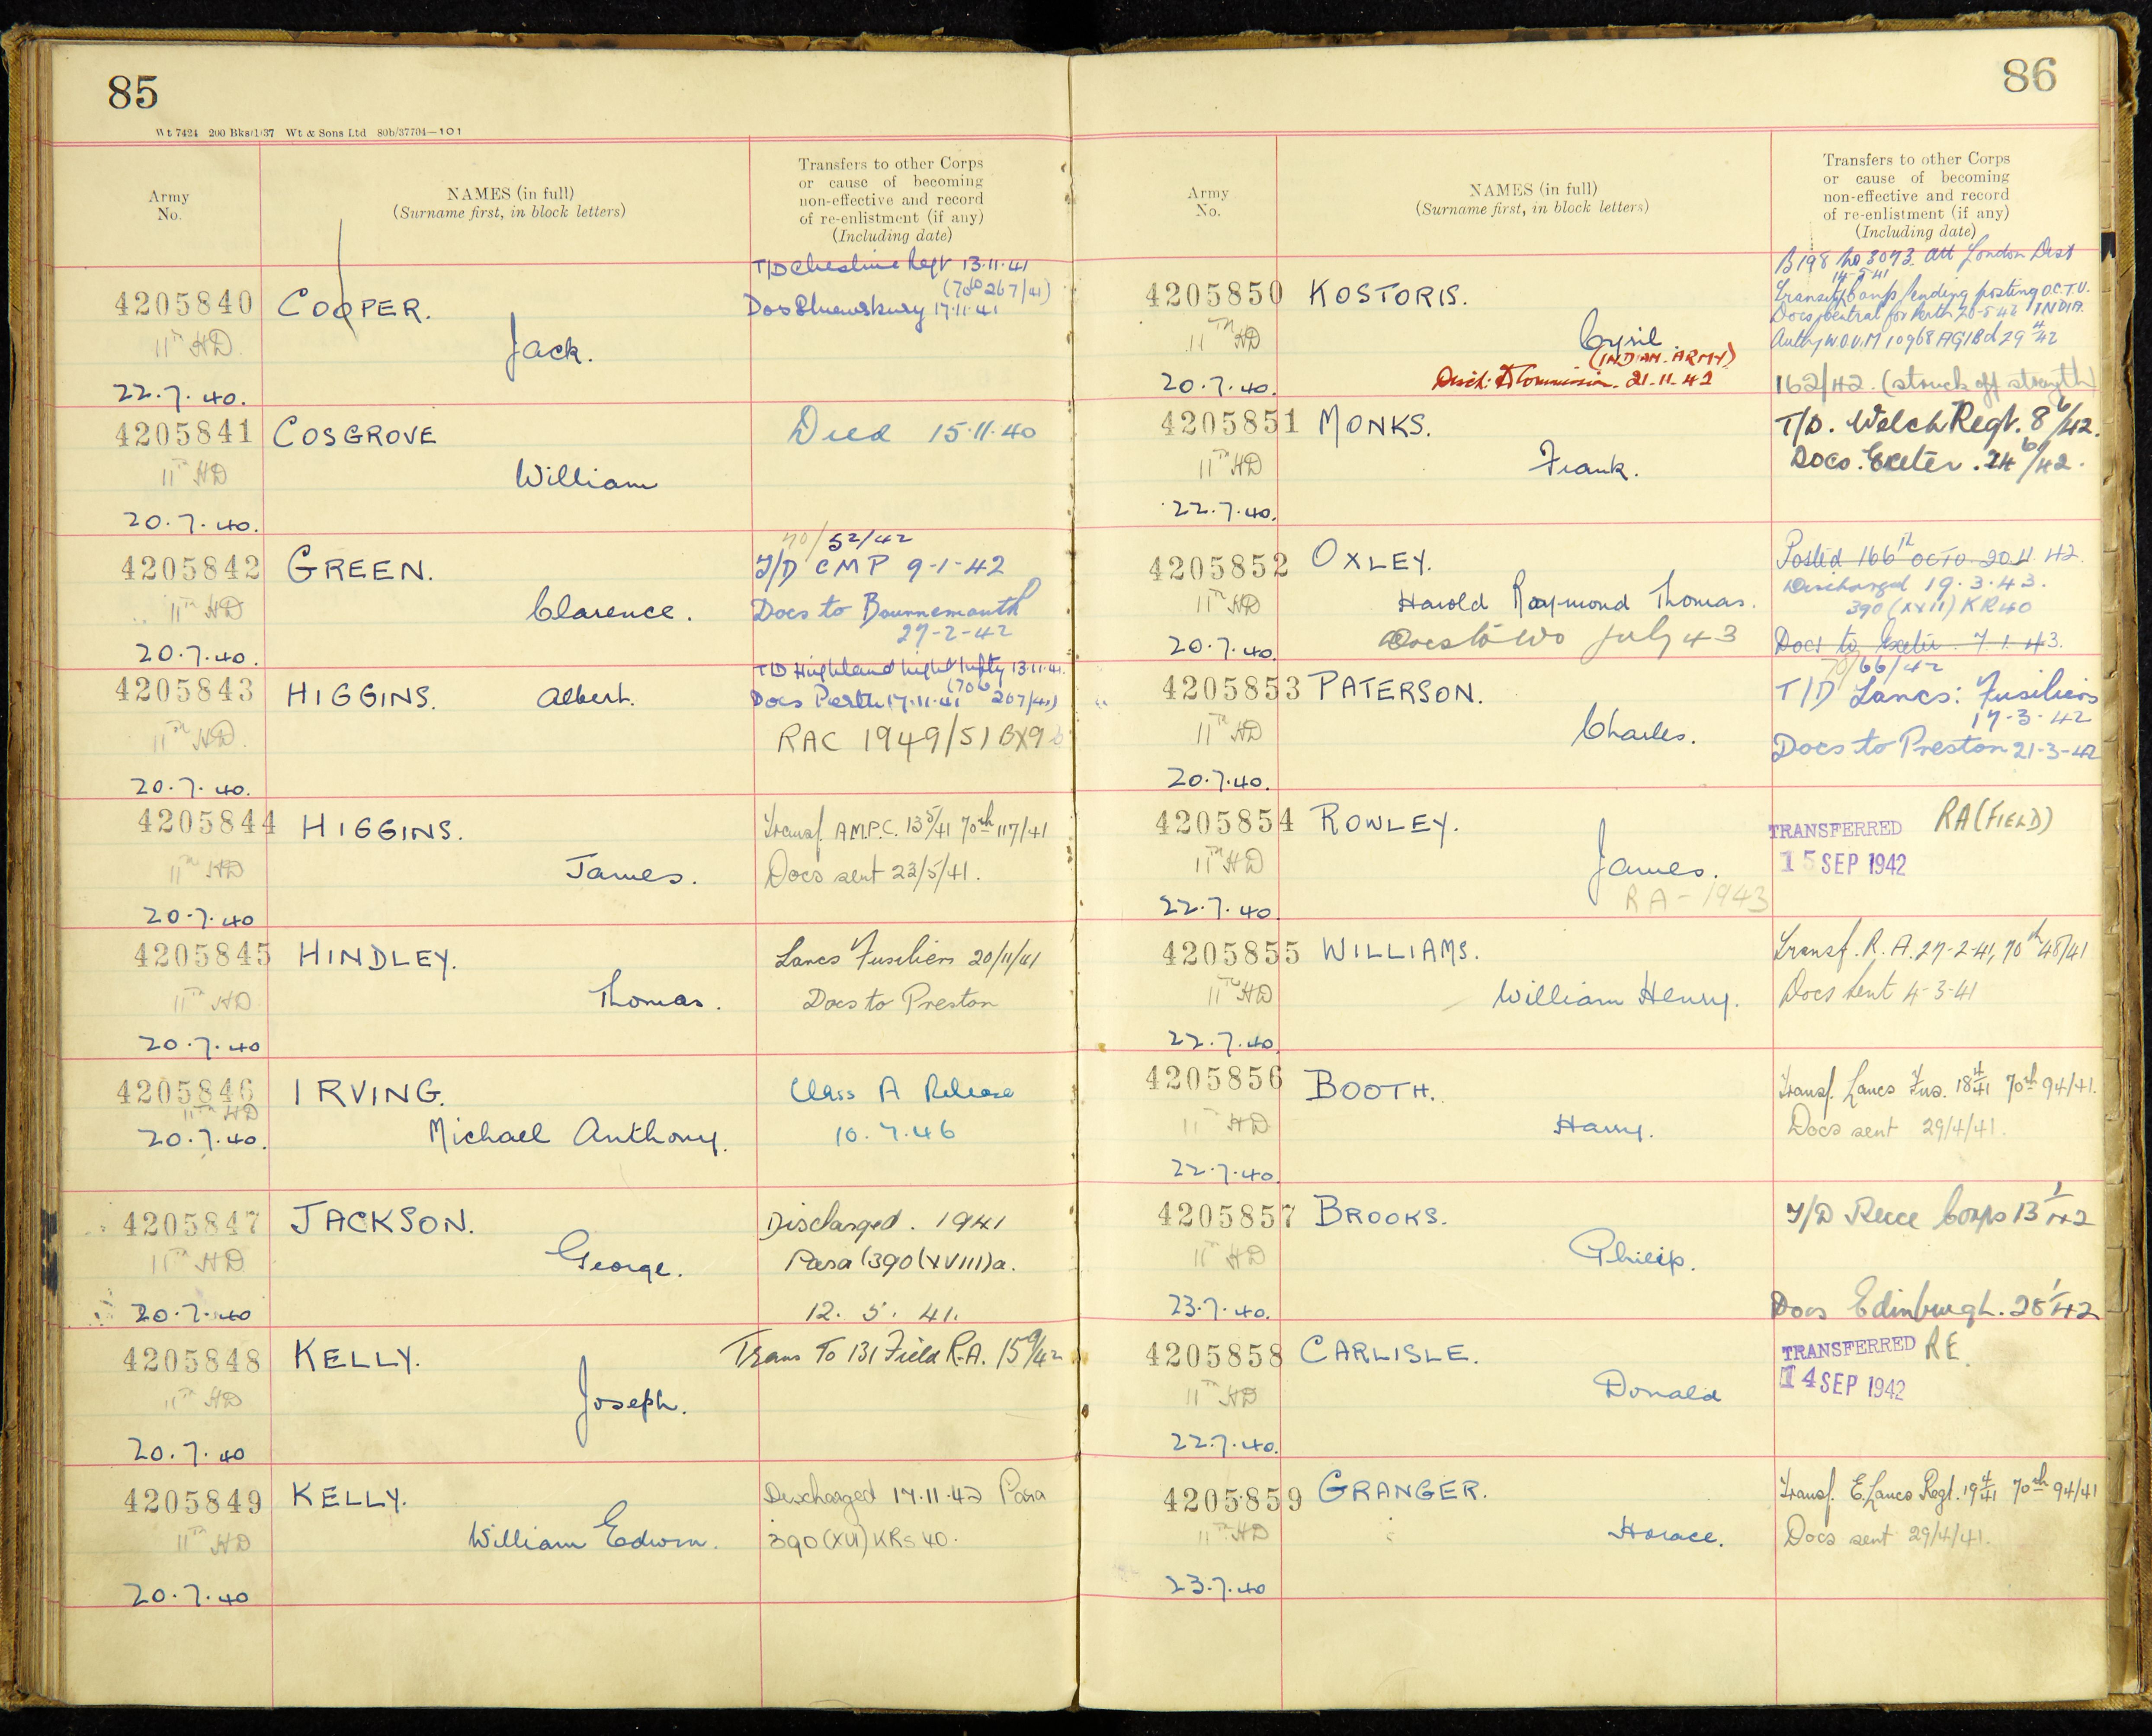 85
Wt 7424 200 Bks/1/37 Wt & Sons Ltd 80b/37704—101
Army
No.
NAMES (in full)
(Surname first, in block letters)
Transfers to other Corps
or cause of becoming
non-effective and record
of re-enlistment (if any)
(Including date)
4205840 COOPER.
11TH HD
Jack.
22.7.40.
T/D Cheshire Regt 13.11.41
(70th 267/41)
Docs Shrewsbury 17.11.41
4205841 COSGROVE
11TH HD
William
20.7.40.
Died 15.11.40
4205842 GREEN.
11TH HD
Clarence.
20.7.40.
70/52/42
T/D CMP 9-1-42
Docs to Bournemouth
27-2-42
4205843 HIGGINS. Albert.
11TH HD.
20.7.40.
T/D Highland Light Infty 13.11.41.
Docs Perth 17.11.41 (70th 267/41)
RAC 1949/51 BX9
4205844 HIGGINS.
11TH HD
James.
20.7.40
Transf. A.M.P.C. 13/5/41 70th 117/41
Docs sent 23/5/41.
4205845 HINDLEY.
11TH HD
Thomas.
20.7.40
Lancs Fusiliers 20/11/41
Docs to Preston
4205846 IRVING.
11TH HD
20.7.40.
Michael Anthony.
Class A Release
10.7.46
4205847 JACKSON.
11TH HD
George.
20.7.40
Discharged. 1941
Para (390(XVIII)a.
12. 5. 41.
4205848 KELLY.
11TH HD
Joseph.
20.7.40
Trans To 131 Field R.A. 15/9/42
4205849 KELLY.
11TH HD
William Edwin.
20.7.40
Discharged 17.11.42 Para
390(XVI)KRs 40.
86
Army
No.
NAMES (in full)
(Surname first, in block letters)
Transfers to other Corps
or cause of becoming
non-effective and record
of re-enlistment (if any)
(Including date)
4205850 KOSTORIS.
11TH HD
Cyril
(INDIAN. ARMY)
20.7.40.
Disch: to Commission. 21.11.42
B198 No 3073 att London Dist
14-5-41
pending posting O.C.T.U.
for Perth 20-5-42 INDIA.
Auth W.O.U.M 10968 AG1Bd 29/4/42
162/42. (struck off strength)
4205851 MONKS.
11TH HD
Frank.
22.7.40.
T/D. Welch Regt. 8/6/42.
Docs. Exeter. 24/6/42.
4205852 OXLEY.
11TH HD
Harold Raymond Thomas.
20.7.40.
Docs to WO July 43
Posted 166th OCTU 20.11.42.
Discharged 19.3.43.
390(XVII) KR40
Docs to Exeter 7.1.43.
4205853 PATERSON.
11TH HD
Charles.
20.7.40.
70/66/42
T/D Lancs: Fusiliers
17-3-42
Docs to Preston 21-3-42
4205854 ROWLEY.
11TH HD
James.
RA-1943
22.7.40.
TRANSFERRED RA(FIELD)
15 SEP 1942
4205855 WILLIAMS.
11TH HD
William Henry.
22.7.40.
Transf. R.A. 27-2-41, 70th 48/41
Docs sent 4-3-41
4205856 BOOTH.
11TH HD
Harry.
22.7.40.
Transf. Lancs Fus. 18/4/41 70th 94/41.
Docs sent 29/4/41.
4205857 BROOKS.
11TH HD
Philip.
23.7.40.
T/D Recce Corps 13/1/42
Docs Edinburgh. 28/1/42
4205858 CARLISLE.
11TH HD
Donald
22.7.40.
TRANSFERRED RE.
14 SEP 1942
4205859 GRANGER.
11TH HD
Horace.
23.7.40
Transf. E. Lancs Regt. 19/4/41 70th 94/41
Docs sent 29/4/41.